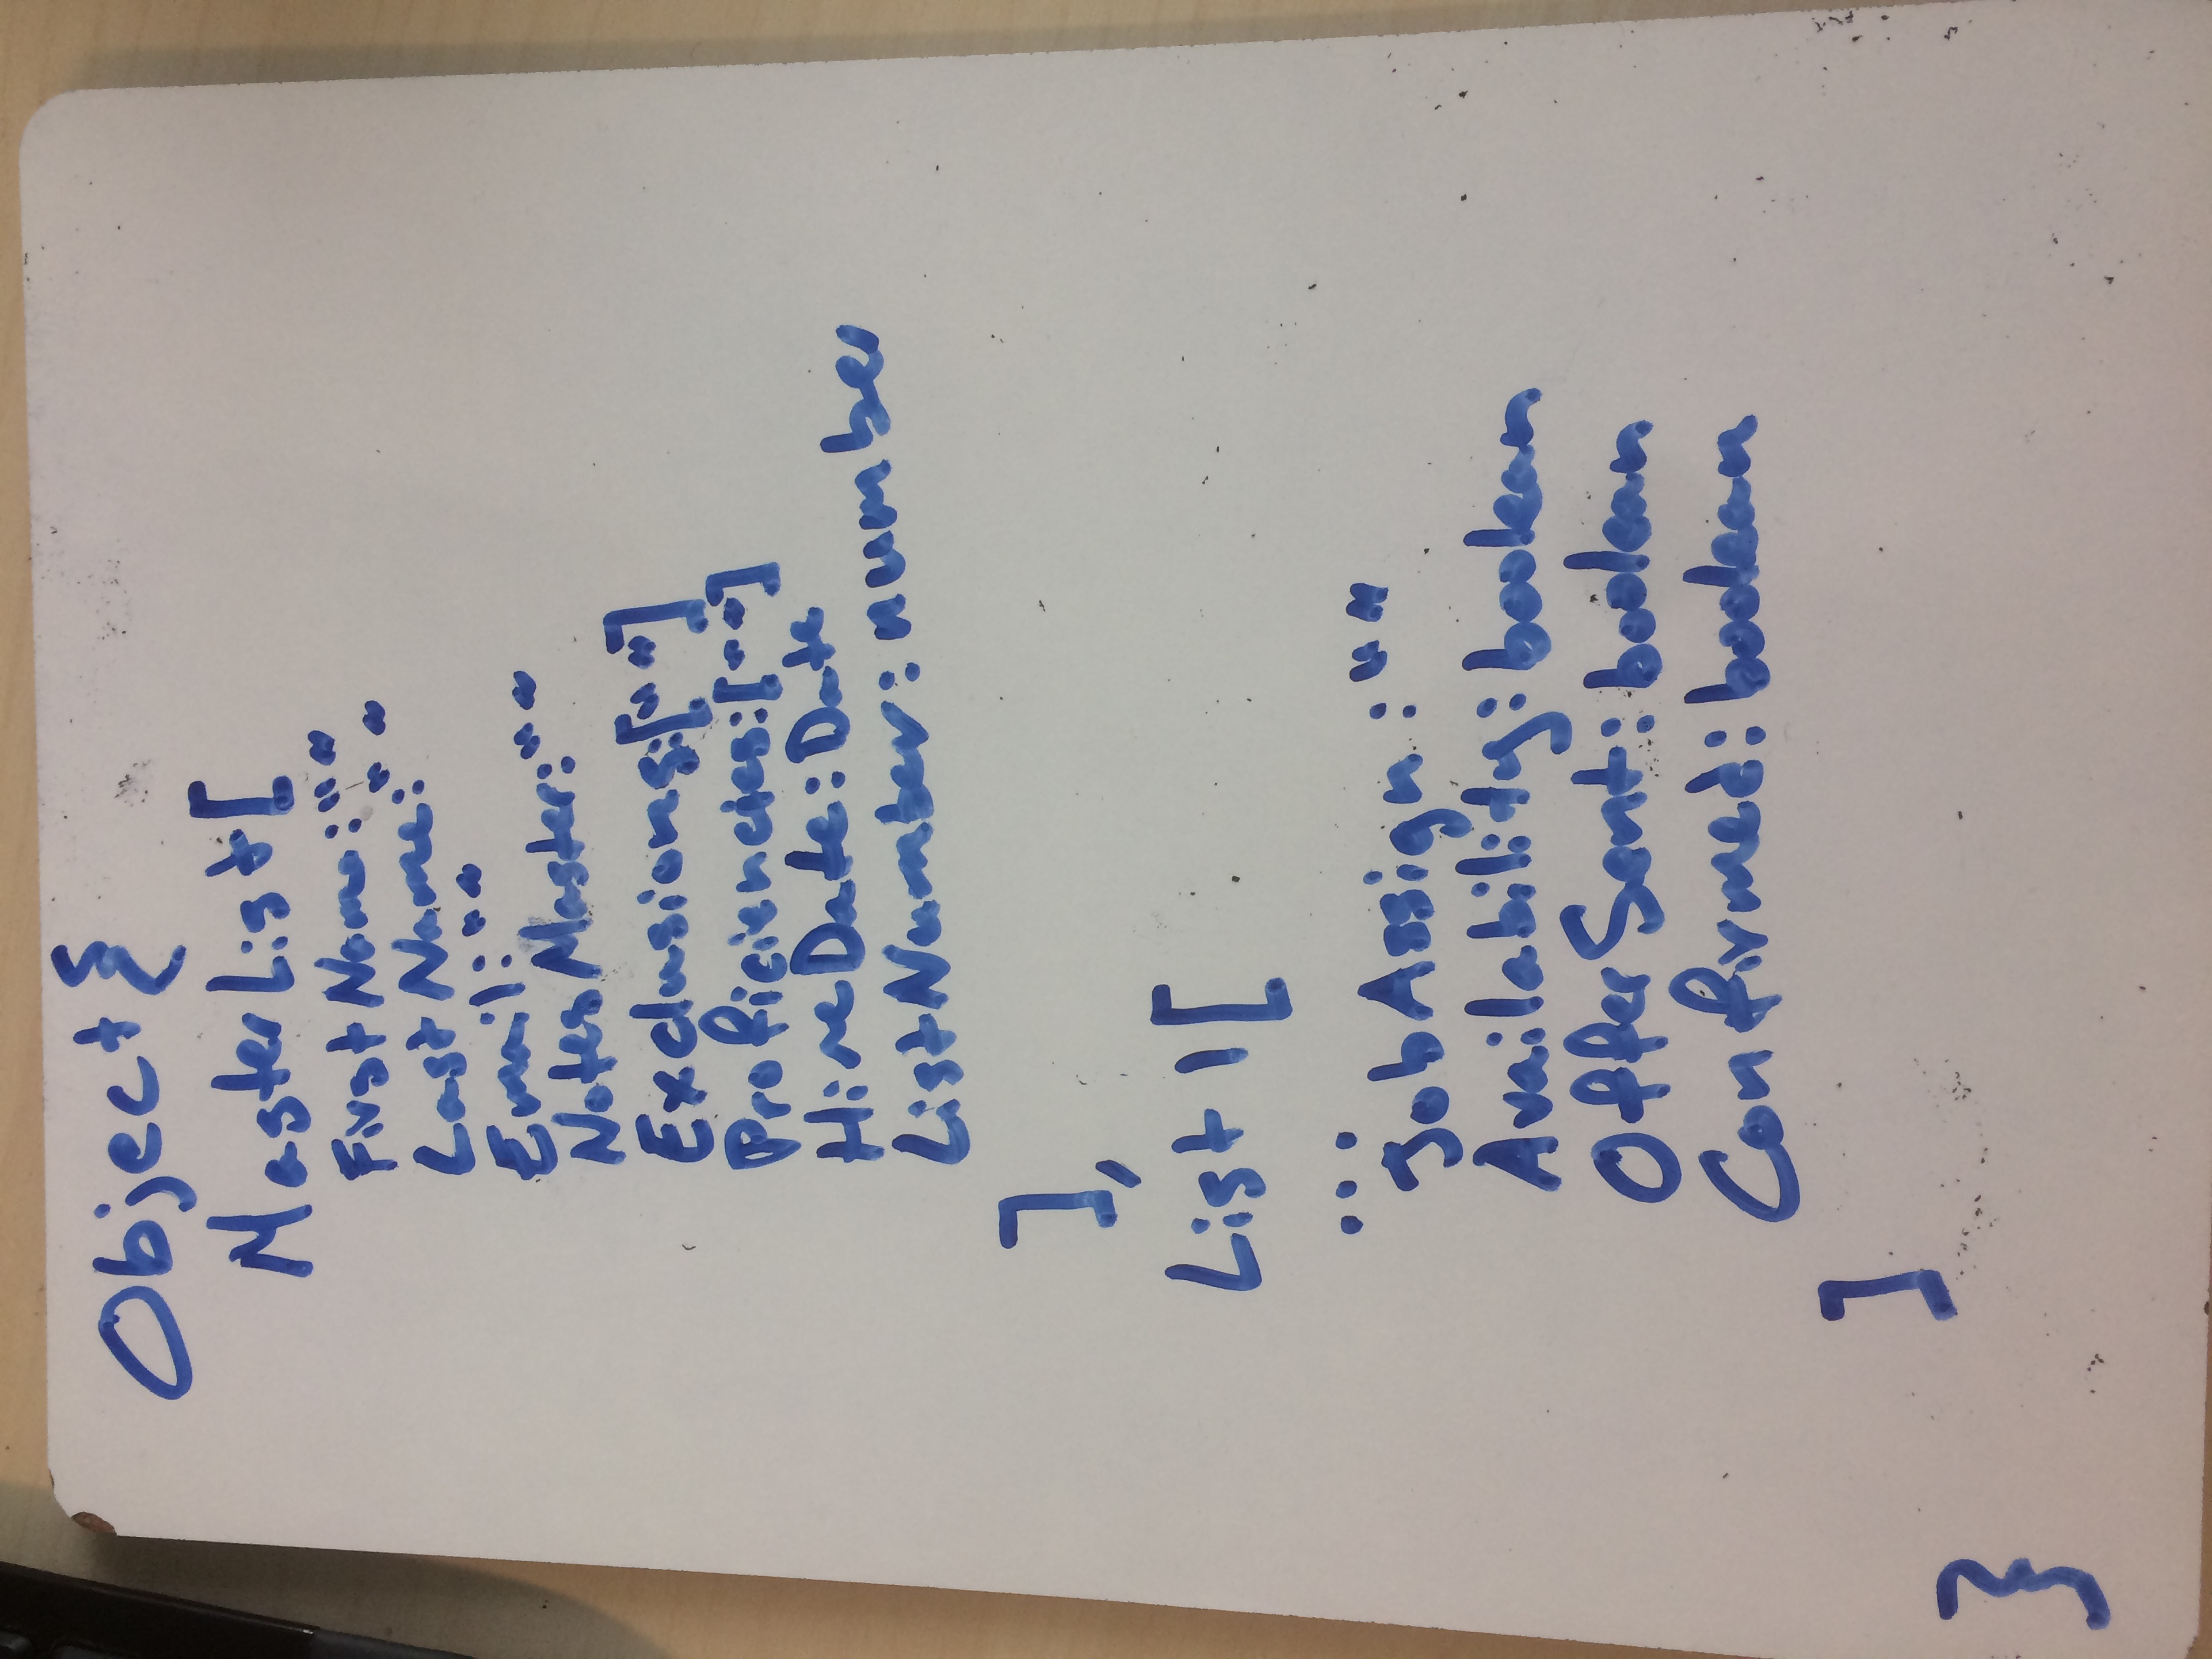 Object{
MasterList[
FirstName:""
LastName:""
Email:""
NotesMaster:""
Exclusions:[""]
Proficiencies:[""]
HireDate:Date
ListNumber:number
],
List1[
...
JobAssign:""
Availability:boolean
OfferSent:boolean
Confirmed:boolean
]
}